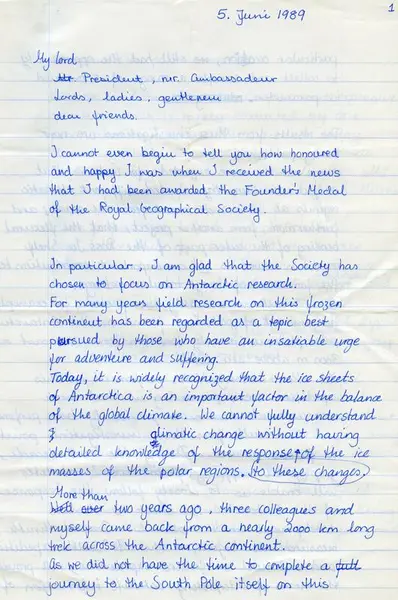 1
5. Juni 1989
My lord
Mr. President, mr. Ambassadeur
Lords, ladies, gentlemen
dear friends.
I cannot even begin to tell you how honoured
and happy I was when I received the news
that I had been awarded the Founder's Medal
of the Royal Geographical Society.
In particular, I am glad that the Society has
chosen to focus on Antarctic research.
For many years field research on this frozen
continent has been regarded as a topic best
pursued by those who have an insatiable urge
for adventure and suffering.
Today, it is widely recognized that the ice sheets
of Antarctica is an important factor in the balance
of the global climate. We cannot fully understand
climatic change without having
detailed knowledge of the response of the ice
masses of the polar regions. to these changes
More than
two years ago, three colleagues and
myself came back from a nearly 2000 km long
trek across the Antarctic continent.
As we did not have the time to complete a full
journey to the South Pole itself on this